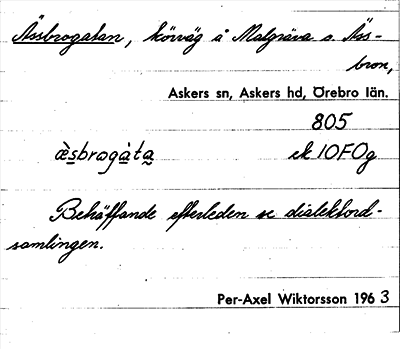 Åssbrogatan, körväg å Malgräva o. Åss-
bron,
Askers sn, Askers hd, Örebro län.
805
ek 10F0g
Behäffande efterleden se dialektord-
samlingen.
Per-Axel Wiktorsson 1963